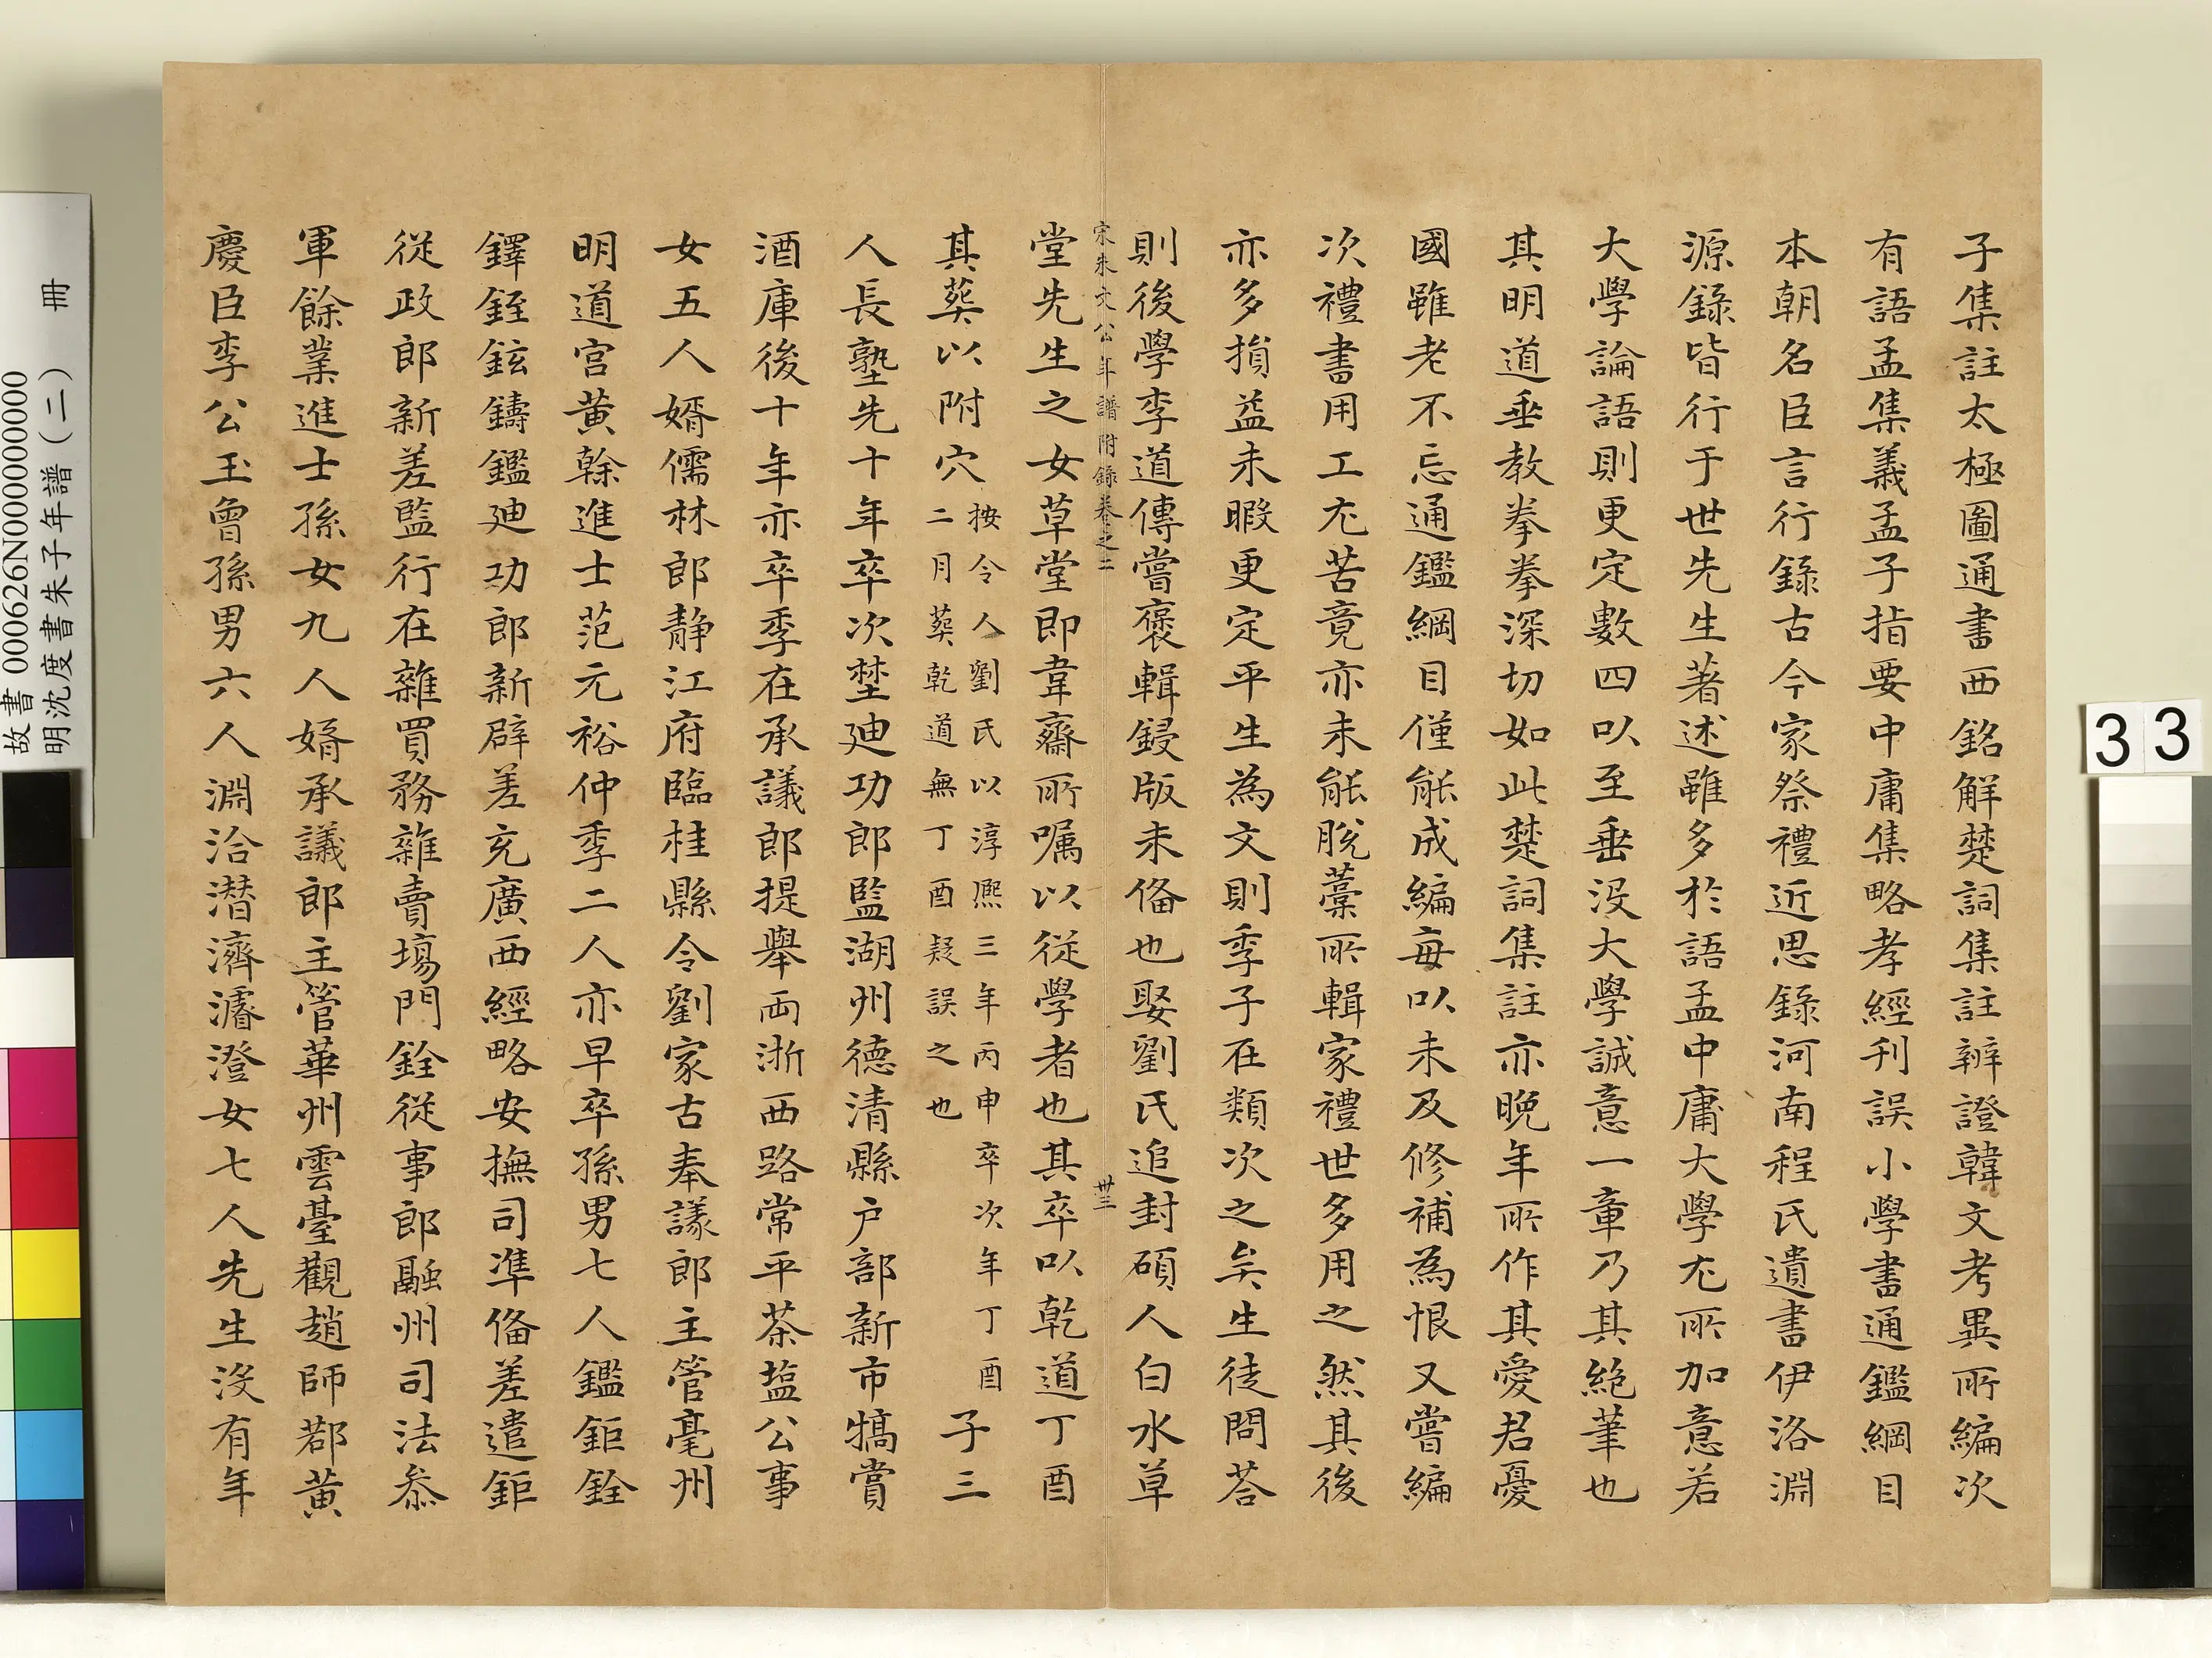 子集註太極圖通書西銘解楚詞集註辨證韓文考異所編次
有語孟集義孟子指要中庸集略孝經刊誤小學書通鑑綱目
本朝名臣言行錄古今家祭禮近思錄河南程氏遺書伊洛淵
源錄皆行于世先生著述雖多於語孟中庸大學尤所加意若
大學論語則更定數四以至垂沒大學誠意一章乃其絕筆也
其明道垂教拳拳深切如此楚詞集註亦晚年所作其愛君憂
國雖老不忘通鑑綱目僅能成編每以未及修補為恨又嘗編
次禮書用工尤苦竟亦未能脫藁所輯家禮世多用之然其後
亦多損益未暇更定平生為文則季子在類次之矣生徒問荅
則後學李道傳嘗裒輯鋟版未俻也娶劉氏追封碩人白水草
宋朱文公年譜附錄卷之三
卅三
堂先生之女草堂即韋齋所嘱以從學者也其卒以乾道丁酉
其葬以附穴
按令人劉氏以淳熈三年丙申卒次年丁酉
二月葬乾道無丁酉疑誤之也
子三
人長塾先十年卒次埜廸功郎監湖州德清縣户部新市犒賞
酒庫後十年亦卒季在承議郎提舉両浙西路常平茶塩公事
女五人婿儒林郎静江府臨桂縣令劉家古奉議郎主管亳州
明道宮黄榦進士范元裕仲季二人亦早卒孫男七人鑑鉅銓
鐸銍鉉鑄鑑廸功郎新辟差充廣西經略安撫司準俻差遣鉅
從政郎新差監行在雜買務雜賣塲門銓從事郎融州司法叅
軍餘業進士孫女九人婿承議郎主管華州雲臺觀趙師鄀黃
慶臣李公玉曾孫男六人淵洽潜濟濬澄女七人先生沒有年
故書 000626N000000000
明沈度書朱子年譜（二） 冊
33